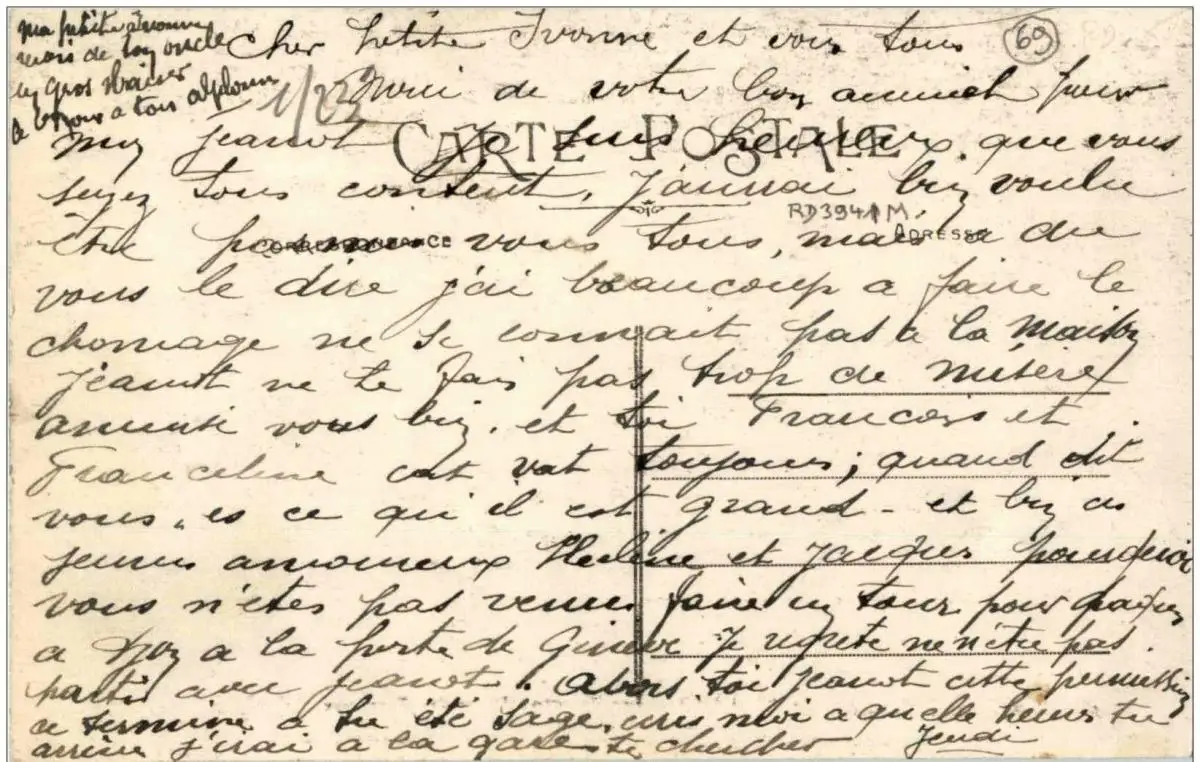 Ma petite
mois de ton oncle
un gros Baiser
a tous
69
Cher petite Ivonne et vous tous
1/22
Merci de votre bon pour
mon Jeanot Je suis heureux que vous
CARTE POSTALE
soyez tous content, J'aurrai bien voulu
RD3941M
être vous tous, mais a du
CORRESPONDANCE
ADRESSE
vous le dire j'ai beaucoup a faire le
chomage ne se connait pas a la Maison
Jeanot ne te fais pas trop de misère
amusé vous bien. et toi Francois et
Franceline cat vat toujours; quand dit
vous, es ce qu'il est grand - et bien ces
jeunes amoureux Heline et Jacques pourquoi
vous n'êtes pas venus faire un tour pour
a a la porte de Je regrete ne n'être pas
partis avec Jeanot. Alors toi Jeanot cette permission
ce termine a tu été sage, moi a quelle heure tu
arrive j'irai a la gare te chercher Jeudi